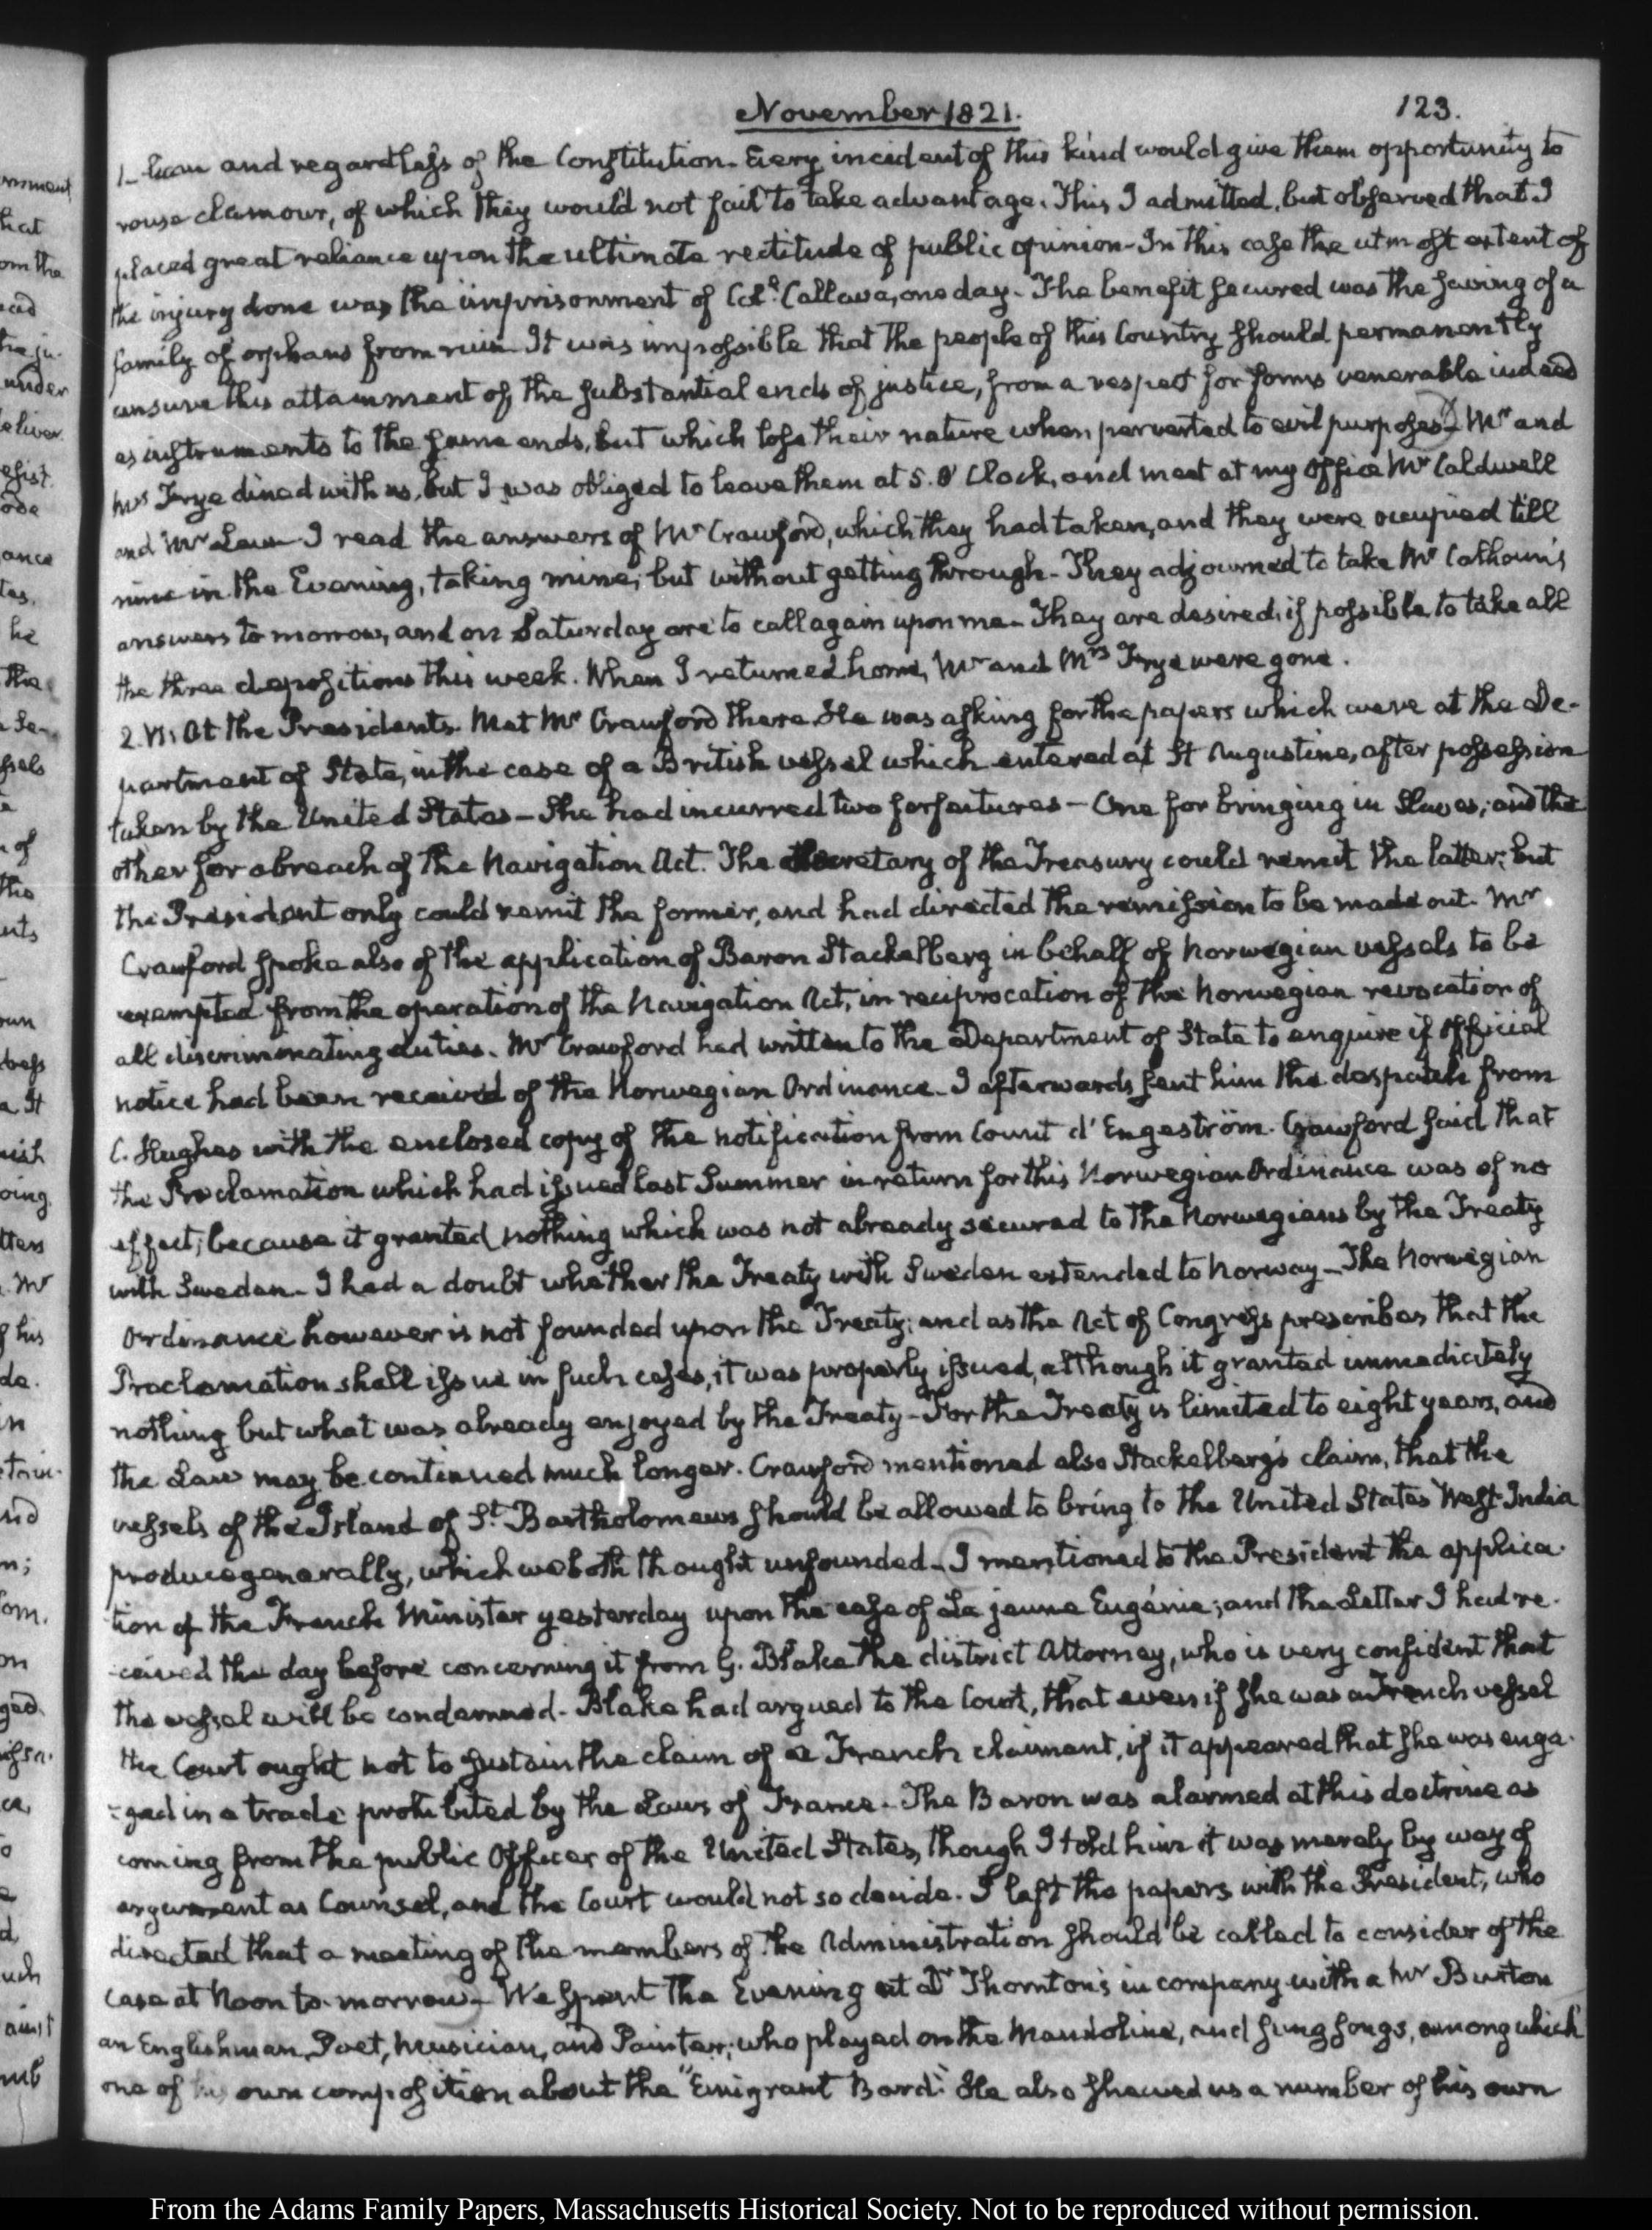 November 1821. 123.
and regardless of the Constitution. Every incident of this kind would give them opportunity to
rouse clamour, of which they would not fail to take advantage. This I admitted, but observed that I
placed great reliance upon the ultimate rectitude of public opinion- In this case the utmost extent of
the injury done was the imprisonment of Coll. Callava, one day- The benefit secured was the saving of a
family of orphans from ruin- It was impossible that the people of this Country should permanently
censure this attainment of the substantial ends of justice, from a respect for forms venerable indeed
as instruments to the same ends, but which lose their nature when perverted to evil purposes- Mr and
Mrs Frye dined with us, but I was obliged to leave them at 5. O'Clock, and meet at my Office Mr Caldwell
and Mr Law- I read the answers of Mr Crawford, which they had taken, and they were occupied till
nine in the Evening, taking mine; but without getting through- They adjourned to take Mr Calhoun's
answers to morrow, and on Saturday are to call again upon me- They are desired, if possible to take all
the three depositions this week. When I returned home, Mr and Mrs Frye were gone.
2. VI. At the Presidents. Met Mr Crawford there. He was asking for the papers which were at the De-
partment of State, in the case of a British vessel which entered at St Augustine, after possession
taken by the United States- She had incurred two forfeitures- One for bringing in Slaves; and the
other for a breach of the Navigation Act. The Secretary of the Treasury could remit the latter; but
the President only could remit the former, and had directed the remission to be made out. Mr.
Crawford spoke also of the application of Baron Stackelberg in behalf of Norwegian vessels to be
exempted from the operation of the Navigation Act, in reciprocation of the Norwegian revocation of
all discriminating duties. Mr Crawford had written to the Department of State to enquire if Official
notice had been received of the Norwegian Ordinance- I afterwards sent him the despatch from
C. Hughes with the enclosed copy of the notification from Count d'Engeström. Crawford said that
the Proclamation which had issued last Summer in return for this Norwegian Ordinance was of no
effect; because it granted nothing which was not already secured to the Norwegians by the Treaty
with Sweden- I had a doubt whether the Treaty with Sweden extended to Norway- The Norwegian
Ordinance however is not founded upon the Treaty; and as the Act of Congress prescribes that the
Proclamation shall issue in such cases, it was properly issued, although it granted immediately
nothing but what was already enjoyed by the Treaty- For the Treaty is limited to eight years, and
the Law may be continued much longer. Crawford mentioned also Stackelberg's claim, that the
vessels of the Island of St. Bartholomews should be allowed to bring to the United States West-India
produce generally, which we both thought unfounded- I mentioned to the President the applica-
tion of the French Minister yesterday upon the case of La jeune Eugénie; and the Letter I had re-
ceived the day before concerning it from G. Blake the district Attorney, who is very confident that
the vessel will be condemned- Blake had argued to the Court, that even if she was a French vessel
the Court ought not to sustain the claim of a French claimant, if it appeared that she was enga-
-ged in a trade prohibited by the Laws of France- The Baron was alarmed at this doctrine as
coming from the public Officer of the United States, though I told him it was merely by way of
argument as Counsel, and the Court would not so decide. I left the papers with the President, who
directed that a meeting of the members of the Administration should be called to consider of the
case at Noon to-morrow- We spent the Evening at Dr Thornton's in company with a Mr Burton
an Englishman, Poet, Musician, and Painter; who played on the Mandoline, and sung songs, among which
one of his own composition about the "Emigrant Bard". He also shewed us a number of his own
From the Adams Family Papers, Massachusetts Historical Society. Not to be reproduced without permission.